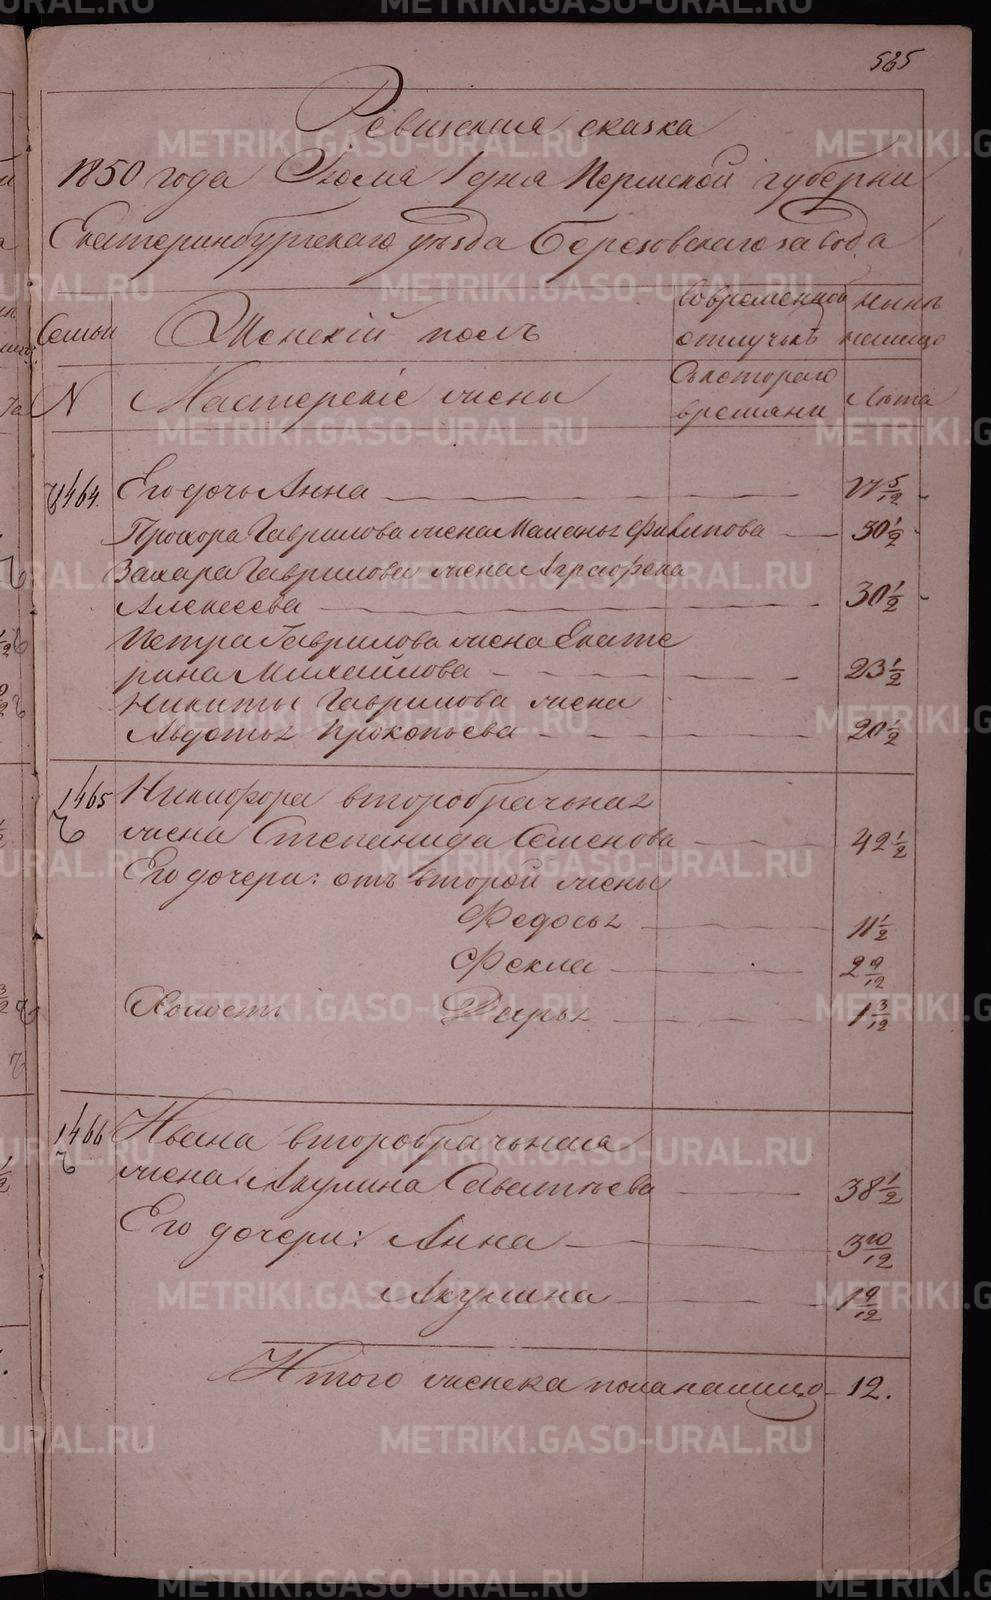 565
Ревизская сказка
1850 года Июля 1 дня Пермской губерни
Екатеринбургскаго уѣзда Березовскаго завода
Семьи
Женскій полъ
Во временной
отлучькѣ
Нынѣ
налицо
N
Мастерскіе жены
Съ котораго
времяни
Лѣта
1464.
Его дочь Анна
Прохора Гаврилова жена Маланья Филипова 50 1/2
Захара Гаврилова жена Аграфена
Алексеева 30 1/2
Петра Гаврилова жена Екате
рина Михайлова 23 1/2
Никиты Гаврилова жена
Авдотья Прокопьева 20 1/2
1465 Никифора второбрачьная
жена Степанида Семенова 42 1/2
Его дочери: отъ второй жены
Федосья 11 1/2
Фекла 2 9/12
Дарья 1 3/12
1466 Ивана второбрачьная
жена Акулина Савватѣева 38 1/2
Его дочери: Анна 3 10/12
Акулина 1 9/12
Итого женска пола налицо 12.
METRIKI.GASO-URAL.RU